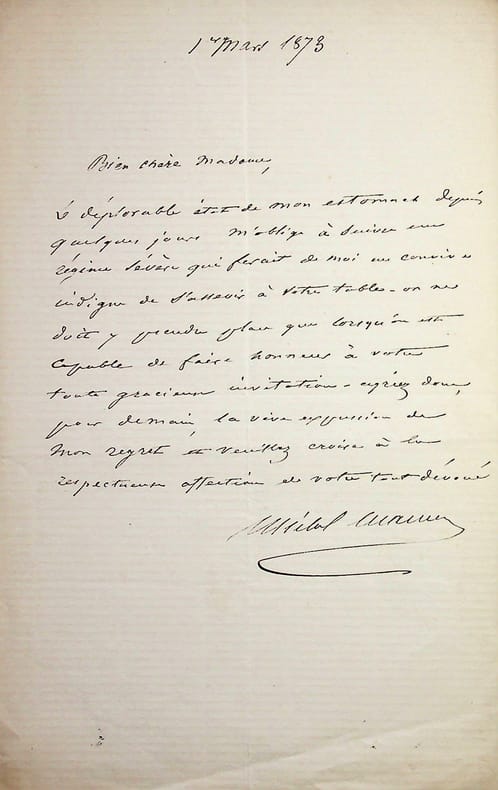 1er Mars 1873
Bien chère Madame,
Le déplorable état de mon estomach depuis
quelques jours m'oblige à suivre un
régime sévère qui ferait de moi un convive
indigne de s'asseoir à votre table - on ne
doit y prendre place que lorsqu'on est
capable de faire honneur à votre
toute gracieuse invitation - agréez donc,
pour demain, la vive expression de
mon regret et veuillez croire à la
respectueuse affection de votre tout dévoué
Michel